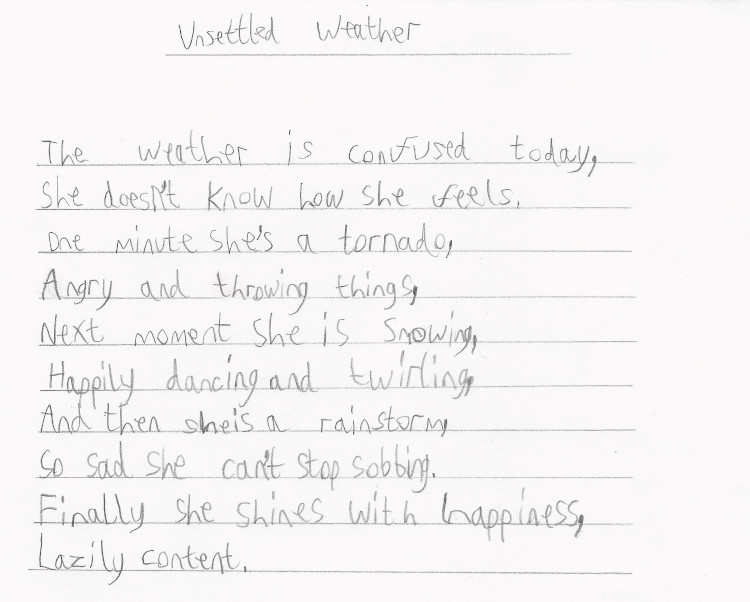 Unsettled Weather
The weather is confused today,
She doesn't know how she feels.
One minute she's a tornado,
Angry and throwing things,
Next moment she is snowing,
Happily dancing and twirling,
And then she is a rainstorm,
So sad she can't stop sobbing.
Finally she shines with happiness,
Lazily content.